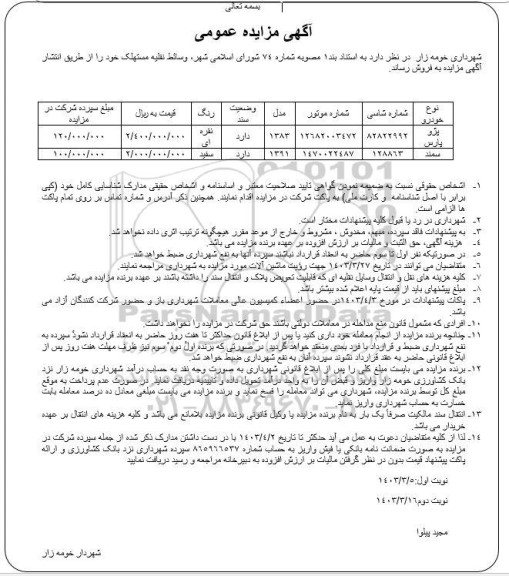 بسمه تعالی
آگهی مزایده عمومی
شهرداری خومه زار در نظر دارد به استناد بند۱ مصوبه شماره ۷۴ شورای اسلامی شهر، وسائط نقلیه مستهلک خود را از طریق انتشار
آگهی مزایده به فروش رساند.
نوع خودرو شماره شاسی شماره موتور مدل وضعیت سند رنگ قیمت به ریال مبلغ سپرده شرکت در مزایده
پژو پارس ۸۲۸۲۲۹۹۲ ۱۲۶۸۲۰۰۳۴۷۲ ۱۳۸۳ دارد نقره ای ۲/۴۰۰/۰۰۰/۰۰۰ ۱۲۰/۰۰۰/۰۰۰
سمند ۱۲۸۸۶۳ ۱۴۷۰۰۲۲۴۸۷ ۱۳۹۱ دارد سفید ۲/۰۰۰/۰۰۰/۰۰۰ ۱۰۰/۰۰۰/۰۰۰
۱- اشخاص حقوقی نسبت به ضمیمه نمودن گواهی تایید صلاحیت معتبر و اساسنامه و اشخاص حقیقی مدارک شناسایی کامل خود (کپی
برابر با اصل شناسنامه و کارت ملی) به پاکت شرکت در مزایده اقدام نمایند. همچنین ذکر آدرس و شماره تماس بر روی تمام پاکت
ها الزامی است.
۲- شهرداری در رد یا قبول کلیه پیشنهادات مختار است.
۳- به پیشنهادات فاقد سپرده، مبهم، مخدوش ، مشروط و خارج از موعد مقرر هیچگونه ترتیب اثری داده نخواهد شد.
۴- هزینه آگهی، حق الثبت و مالیات بر ارزش افزوده بر عهده برنده مزایده می باشد.
۵- در صورتیکه نفر اول تا سوم حاضر به انعقاد قرارداد نباشند سپرده آنها به نفع شهرداری ضبط خواهد شد.
۶- متقاضیان می توانند در تاریخ ۱۴۰۳/۳/۲۷ جهت رؤیت ماشین آلات مورد مزایده به شهرداری مراجعه نمایند.
۷- کلیه هزینه های نقل و انتقال وسایل نقلیه ای که قابلیت تعویض پلاک و انتقال سند را داشته باشند بر عهده برنده مزایده می باشد.
۸- مبلغ پیشنهای باید از قیمت پایه اعلام شده بیشتر باشد.
۹- پاکات پیشنهادات در مورخ ۱۴۰۳/۴/۳در حضور اعضاء کمیسیون عالی معاملات شهرداری باز و حضور شرکت کنندگان آزاد می
باشد.
۱۰- افرادی که مشمول قانون منع مداخله در معاملات دولتی باشند حق شرکت در مزایده را نخواهند داشت.
۱۱- چنانچه برنده مزایده از انجام معامله خود داری کنید یا پس از ابلاغ قانون حداکثر تا هفت روز حاضر به انعقاد قرارداد نشود سپرده به
نفع شهرداری ضبط و قرارداد با فرد بعدی منعقد خواهد گردید. در صورتی که برنده اول دوم سوم نیز ظرف مهلت هفت روز پس از
ابلاغ قانونی حاضر به عقد قرارداد نشوند سپرده آنان به نفع شهرداری ضبط خواهد شد.
۱۲- برنده مزایده می بایست مبلغ کلی را پس از ابلاغ قانونی شهرداری به صورت وجه نقد به حساب درآمد شهرداری خومه زار نزد
بانک کشاورزی خومه زار واریز و قبض آن را به واحد درآمد تحویل داده و تاییدیه دریافت نماید. در صورت عدم پرداخت به موقع
مبلغ کل توسط برنده مزایده، شهرداری می تواند معامله را فسخ نماید و برنده مزایده می بایست مبلغی معادل ده درصد معامله بابت
خسارت به حساب شهرداری واریز نماید.
۱۳- انتقال سند مالکیت صرفاً یک بار به نام برنده مزایده یا وکیل قانونی برنده مزایده بلامانع می باشد و کلیه هزینه های انتقال بر عهده
خریدار می باشد.
۱۴- لذا از کلیه متقاضیان دعوت به عمل می آید حداکثر تا تاریخ ۱۴۰۳/۴/۲ با در دست داشتن مدارک ذکر شده از جمله سپرده شرکت در
مزایده به صورت ضمانت نامه بانکی یا فیش واریز به حساب شماره ۸۶۵۹۶۶۵۳۷ سپرده شهرداری نزد بانک کشاورزی و ارائه
پاکت پیشنهاد قیمت بدون در نظر گرفتن مالیات بر ارزش افزوده به دبیرخانه مراجعه و رسید دریافت نمایید
نوبت اول:۱۴۰۳/۳/۵
نوبت دوم:۱۴۰۳/۳/۱۶
مجید پینوا
شهردار خومه زار
ParsNamadData